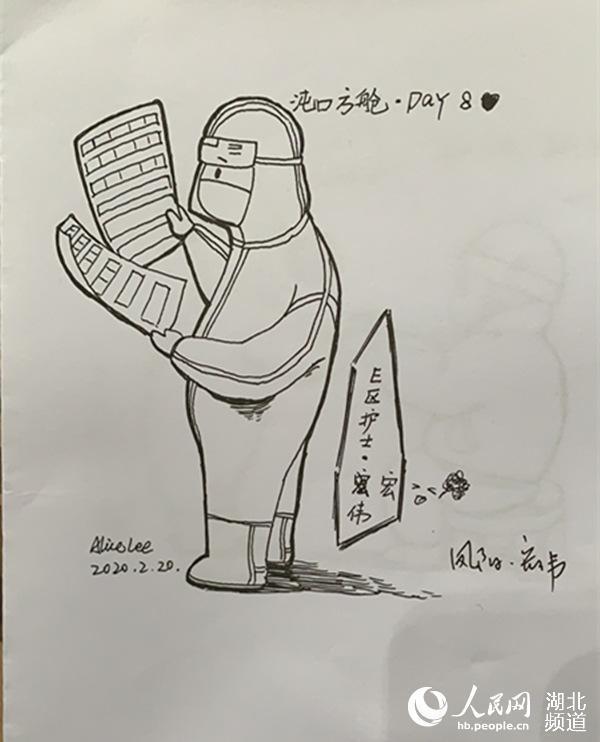 沌口方舱·Day 8 ♥
E区护士·宏伟
Alice Lee
2020.2.20.
人民网 湖北频道
hb.people.cn